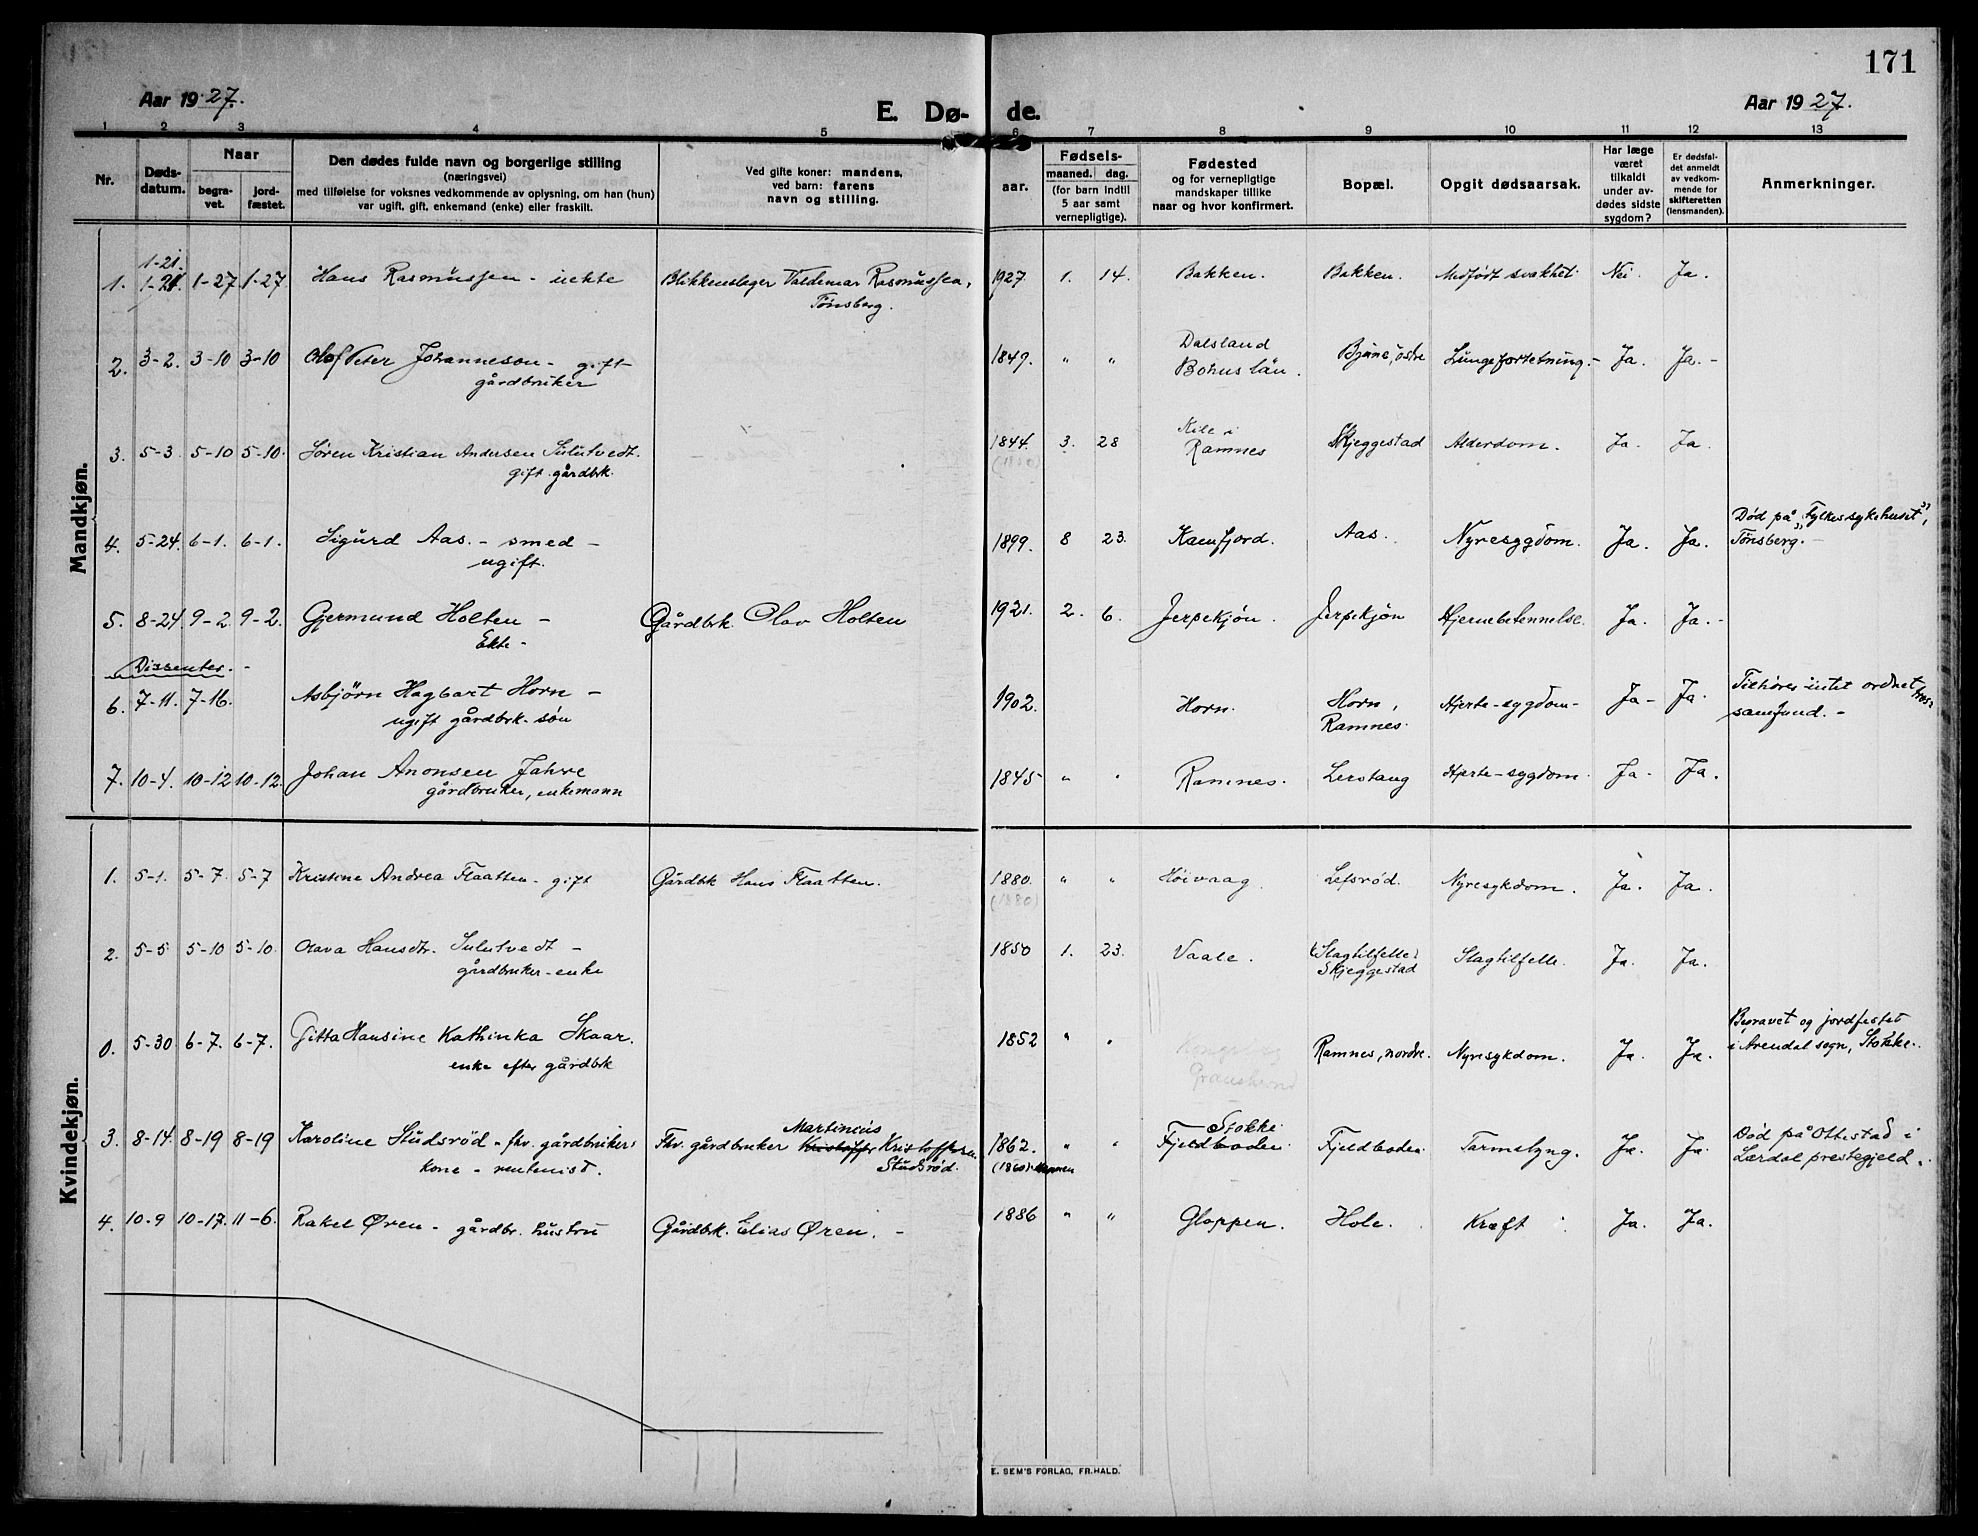 171
Aar 1927.
E. Dø- de.
Aar 1927.
1 2 3 4 5 6 7 8 9 10 11 12 13
Nr.
Døds-
datum.
Naar
begra-
vet.
jord-
fæstet.
Den dødes fulde navn og borgerlige stilling
(næringsvei)
med tilføielse for voksnes vedkommende av oplysning, om han (hun)
var ugift, gift, enkemand (enke) eller fraskilt.
Ved gifte koner: mandens,
ved barn: farens
navn og stilling.
aar.
Fødsels-
maaned. dag.
(for barn indtil
5 aar samt
vernepligtige).
Fødested
og for vernepligtige
mandskaper tillike
naar og hvor konfirmert.
Bopæl.
Opgit dødsaarsak.
Har læge
været
tilkaldt
under av-
dødes sidste
sygdom?
Er dødsfal-
det anmeldt
av vedkom-
mende for
skifteretten
(lensmanden).
Anmerkninger.
Mandkjøn.
1-21.
1. 1-21. 1-27 1-27 Hans Rasmussen - uekte Blikkenslager Valdemar Rasmussen, 1927. 1. 14. Bakken. Bakken. Medfødt svakhet. Nei. Ja.
Tønsberg.
2. 3-2. 3-10 3-10 Olof Peter Johanneson - gift 1849. " " Dalsland Bjune, østre Lungefortetning. - Ja. Ja. -
gårdbruker Bohus län.
3. 5-3. 5-10 5-10. Søren Kristian Andersen Sulutvedt. 1844. 3. 28 Kile i Skjeggestad Alderdom. Ja. Ja.
gift gårdbk. (1850) Ramnes
4. 5-24. 6-1. 6-1. Sigurd Aas. - smed - 1899. 8 23. Kamfjord. Aas. Nyresygdom. Ja. Ja. Død på "Fylkessykehuset",
ugift. Tønsberg. -
5. 8-24 9-2. 9-2. Gjermund Holten - Gårdbk. Olav Holten 1921. 2. 6. Jerpekjøn. Jerpekjøn Hjernebetennelse. Ja. Ja. -
Ekte -
Dissenter. -
6. 7-11. 7-16. Asbjørn Hagbart Horn - 1902. Horn. Horn, Hjerte-sygdom- Ja - Ja. Tilhører intet ordnet tros-
ugift gårdbk. søn Ramnes. samfund. -
7. 10-4. 10-12 10-12. Johan Anonsen Jahre 1845 " " Ramnes. Lerstang Hjerte-sygdom. Ja - Ja.
gårdbruker, enkemann
Kvindekjøn.
1. 5-1. 5-7. 5-7 Kristine Andrea Flaatten - gift Gårdbk Hans Flaatten. 1880. " " Høivaag. Lefsrød. Nyresykdom. Ja. Ja.
(1880)
2. 5-5 5-10 5-10. Olava Hansdtr. Sulutvedt - 1850 1. 23. Vaale. (Slagtilfelle) Slagtilfelle. Ja. Ja.
gårdbruker-enke Skjeggestad
0. 5-30 6-7. 6-7. Gitta Hansine Kathinka Skaar. 1852 " " Ramnes, nordre. Nyresykdom. Ja. Ja. Begravet og jordfestet
enke efter gårdbk i Arendal sogn, Stokke.
3. 8-14. 8-19 8-19 Karoline Studsrød - fhv. gårdbrukers Fhv. gårdbruker Martinius Kristoffer Kristoffersen 1862. " " Stokke. Fjeldboden. Tarmslyng. Ja. Ja. Død på Ottestad i
kone - rentenist. Studsrød. (1860) Fjeldboden. Lærdal prestegjeld.
4. 10-9 10-17. 11-6. Rakel Øren - gårdbr. hustru Gårdbk. Elias Øren. - 1886 " " Gloppen. Hole. Kræft Ja. Ja.
E. SEM'S FORLAG, FR.HALD.